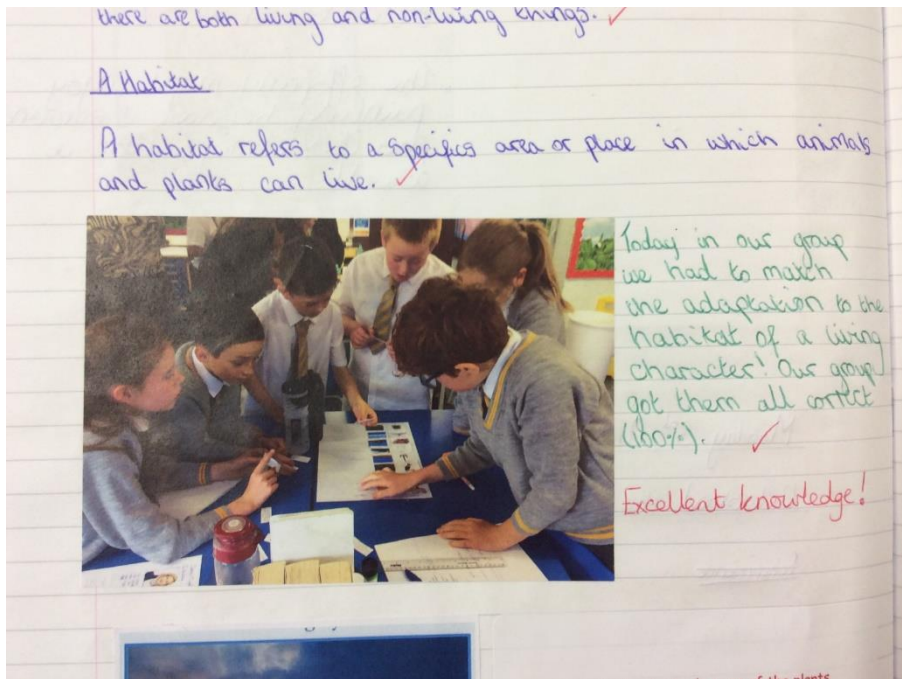 there are both living and non-living things.
A Habitat
A habitat refers to a specifics area or place in which animals
and plants can live.
Today in our group
we had to match
the adaptation to the
habitat of a living
character! Our group
got them all correct
(100%).
Excellent knowledge!
of the plants